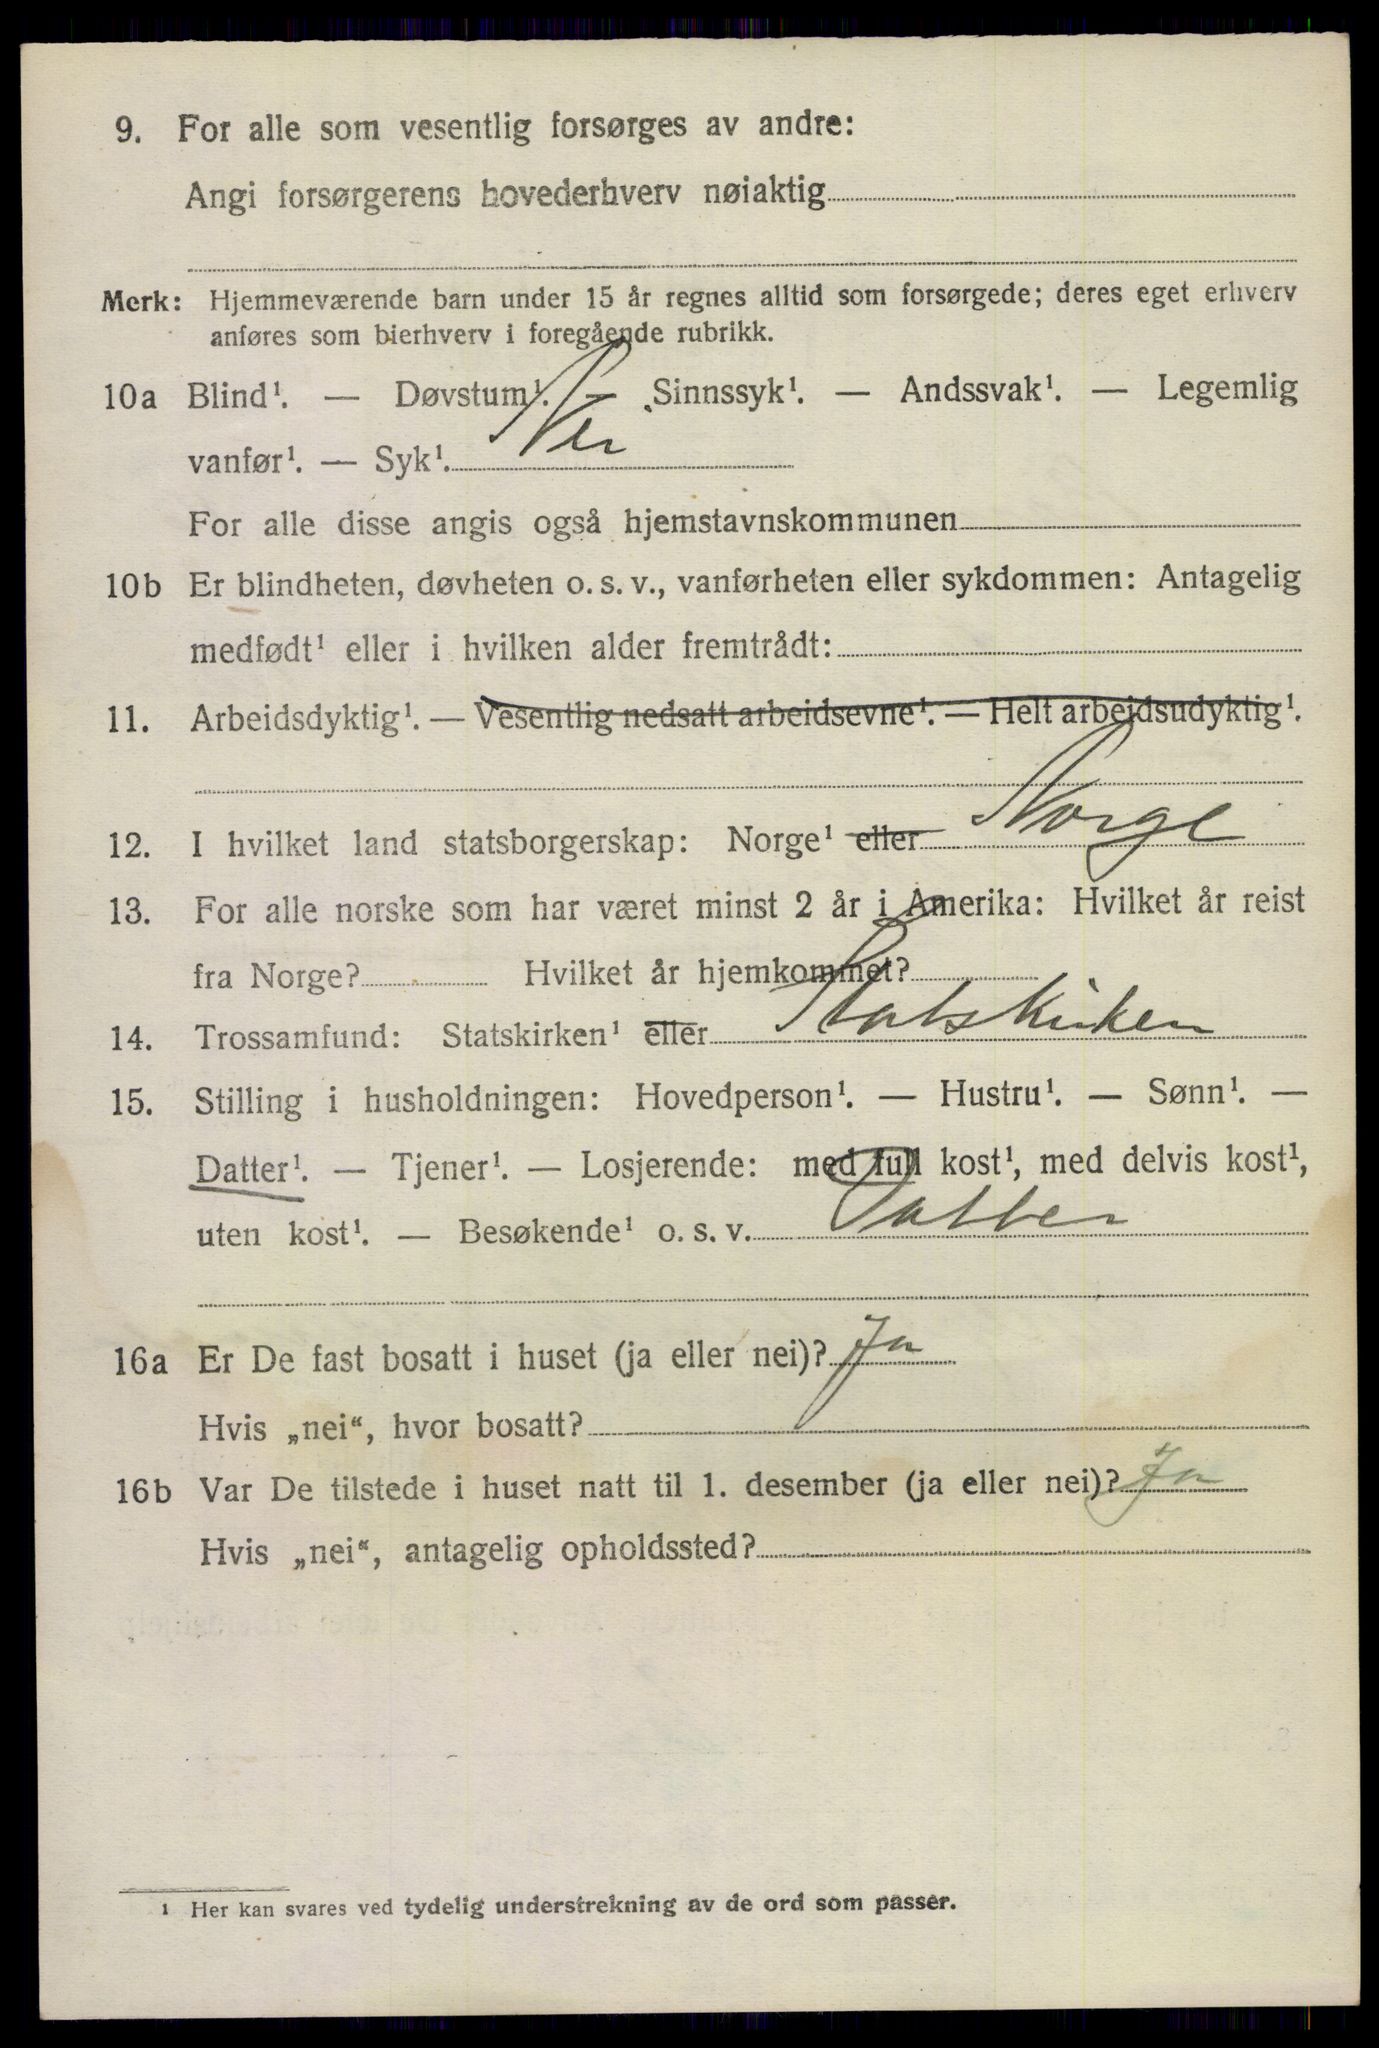 9. For alle som vesentlig forsørges av andre:
Angi forsørgerens hovederhverv nøiaktig
Merk: Hjemmeværende barn under 15 år regnes alltid som forsørgede; deres eget erhverv
anføres som bierhverv i foregående rubrikk.
10a Blind¹. — Døvstum¹. — Sinnssyk¹. — Andssvak¹. — Legemlig
vanfør¹. — Syk¹. Nei
For alle disse angis også hjemstavnskommunen
10b Er blindheten, døvheten o. s. v., vanførheten eller sykdommen: Antagelig
medfødt¹ eller i hvilken alder fremtrådt:
11. Arbeidsdyktig¹. — Vesentlig nedsatt arbeidsevne¹. — Helt arbejdsudyktig¹.
12. I hvilket land statsborgerskap: Norge¹ eller Norge
13. For alle norske som har været minst 2 år i Amerika: Hvilket år reist
fra Norge? Hvilket år hjemkommet?
14. Trossamfund: Statskirken¹ eller Statskirken
15. Stilling i husholdningen: Hovedperson¹. — Hustru¹. — Sønn¹. —
Datter¹. — Tjener¹. — Losjerende: med full kost¹, med delvis kost¹,
uten kost¹. — Besøkende¹ o. s. v. Datter
16a Er De fast bosatt i huset (ja eller nei)? Ja
Hvis „nei“, hvor bosatt?
16b Var De tilstede i huset natt til 1. desember (ja eller nei)? Ja
Hvis „nei“, antagelig opholdssted?
¹ Her kan svares ved tydelig understrekning av de ord som passer.